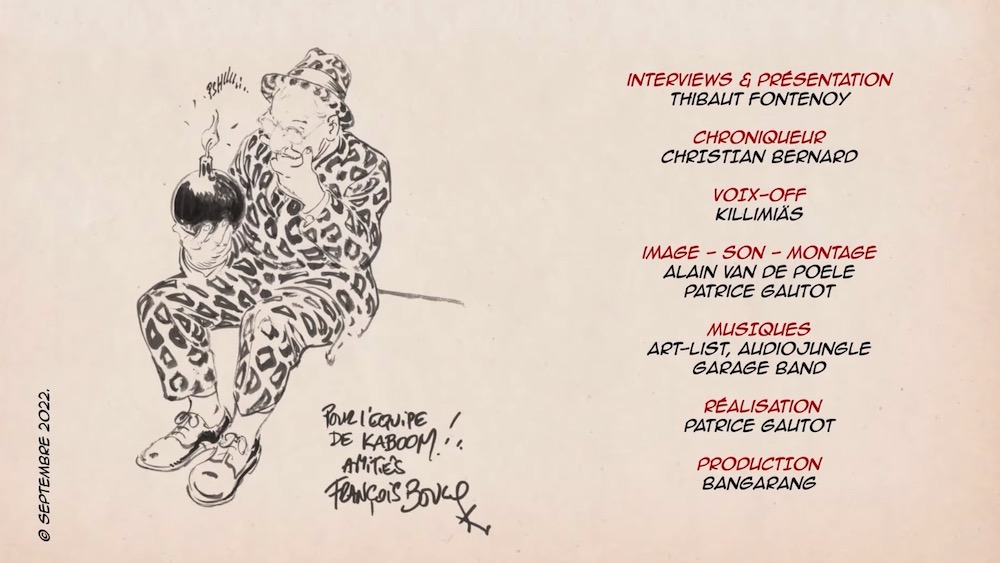 PSHIIII...
POUR L'EQUIPE
DE KABOOM!!..
AMITIÉS
FRANÇOIS BOUCQ
© SEPTEMBRE 2022.
INTERVIEWS & PRÉSENTATION
THIBAUT FONTENOY
CHRONIQUEUR
CHRISTIAN BERNARD
VOIX-OFF
KILLIMIÄS
IMAGE - SON - MONTAGE
ALAIN VAN DE POELE
PATRICE GAUTOT
MUSIQUES
ART-LIST, AUDIOJUNGLE
GARAGE BAND
RÉALISATION
PATRICE GAUTOT
PRODUCTION
BANGARANG